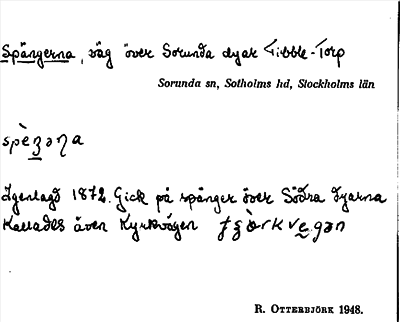 Spångerna, väg över Sorunda dyar Fibble-Torp
Sorunda sn, Sotholms hd, Stockholms län
Igenlagd 1872. Gick på spånger över Södra dyarna
Kallades även Kyrkvägen
R. OTTERBJÖRK 1948.